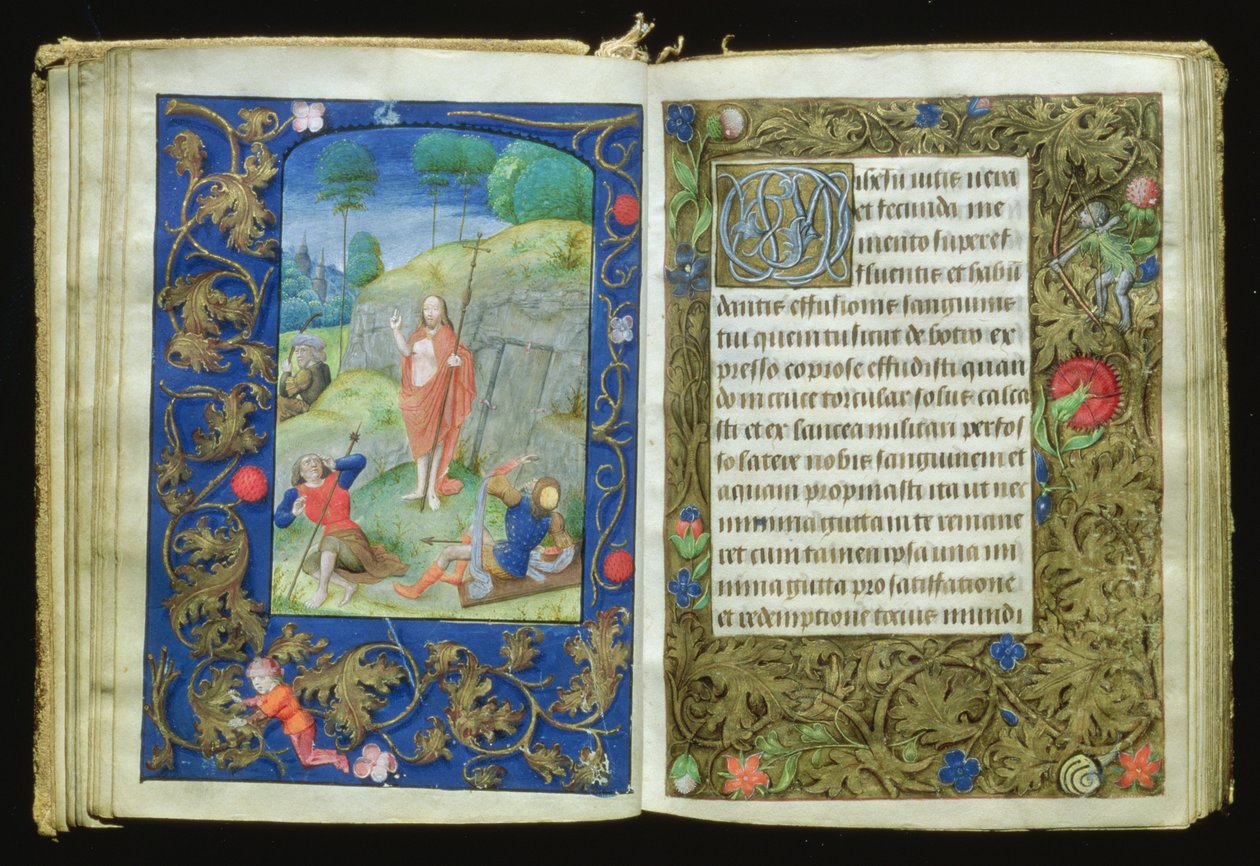 O ihesu uitis uera
et fecunda me
mento superef
fluentis et habū
dantis effusionis sanguinis
tui quem tu sicut de botro ex
presso copiose effudisti quan
do in cruce torcular solus calca
sti et ex lancea militari perfos
so latere nobis sanguinem et
aquam propinasti ita ut nec
minima gutta in te remane
ret cum tamen ipsa una mi
nima gutta pro satisfatione
et redemptione totius mundi